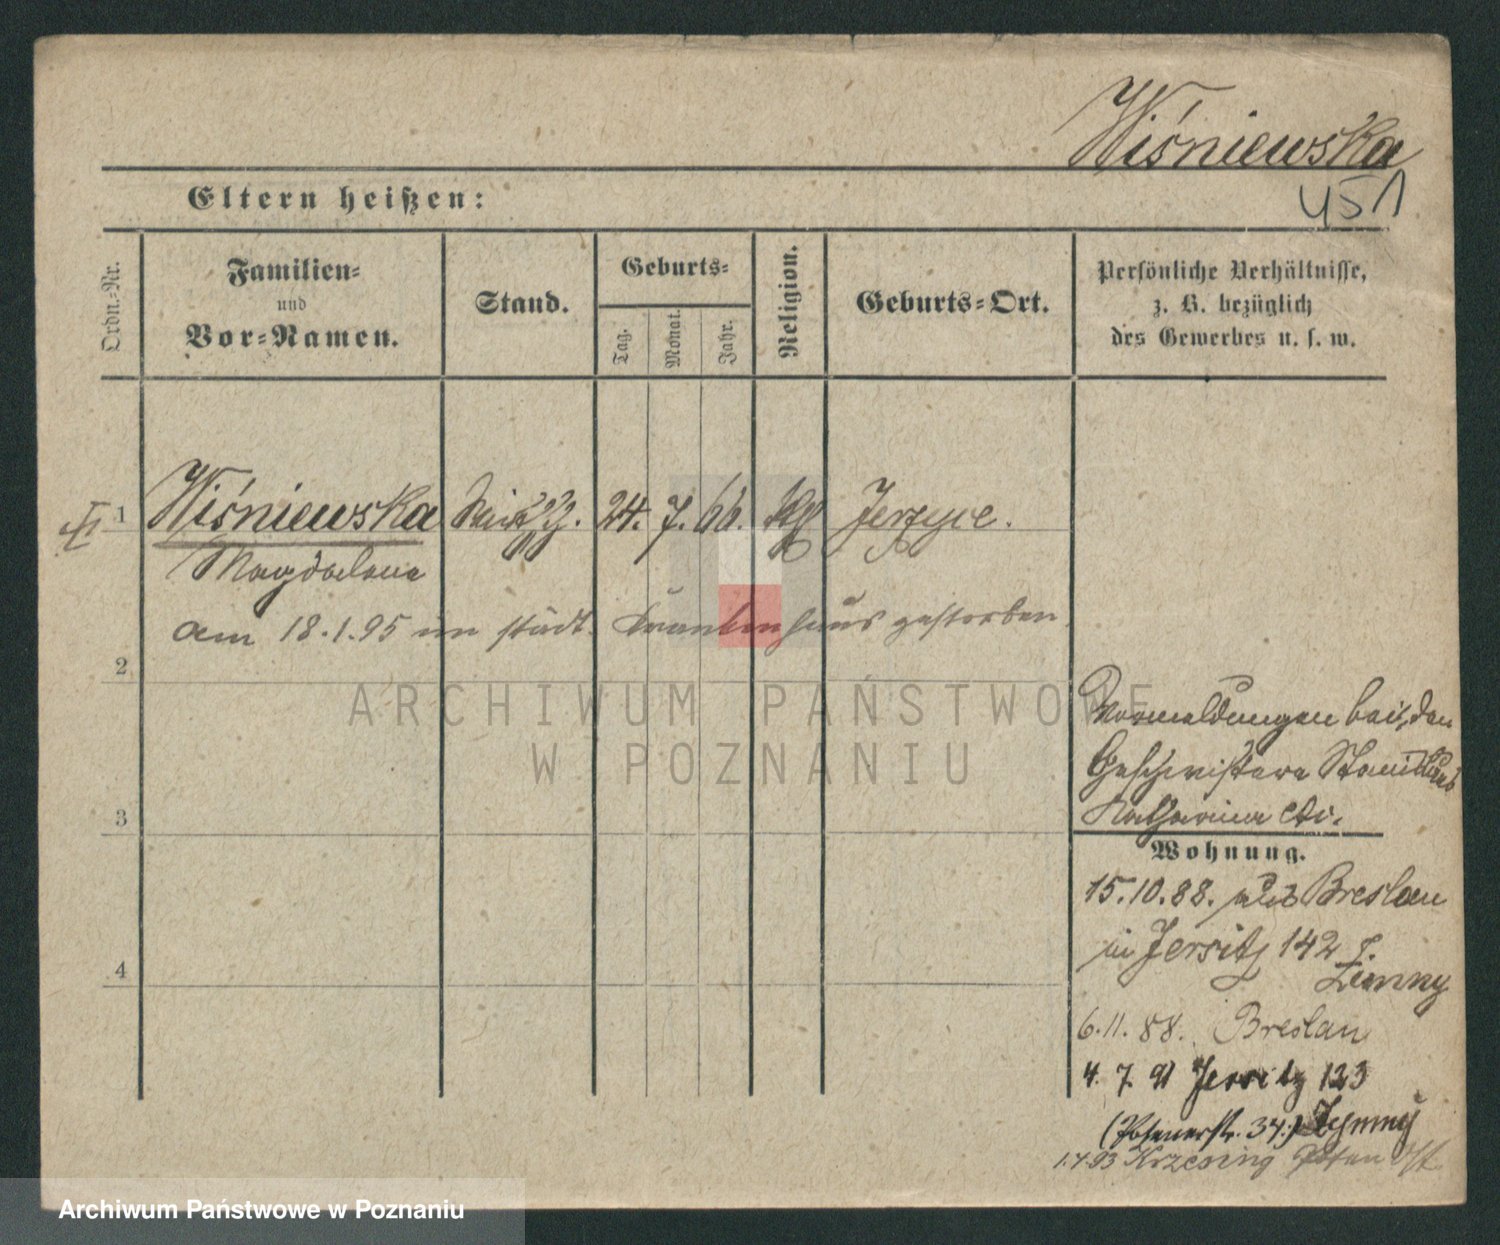 Wiśniewska
451
Eltern heißen:
Ordn.-Nr.
Familien-
und
Vor-Namen.
Stand.
Geburts-
Tag.
Monat.
Jahr.
Religion.
Geburts-Ort.
Persönliche Verhältnisse,
z. B. bezüglich
des Gewerbes u. s. w.
1 Wiśniewska 24. 7. 66. Jerzyce.
Magdalena
am 18.1.95 im städt. Krankenhaus gestorben
2
3
4
Vormeldungen bei den
Geschwistern Stanislaus
Katharina
Wohnung.
15.10.88. aus Breslau
in Jersitz 142
Zimny
6.11.88. Breslau
4. 7. 91 Jersitz 123
(Posenerstr. 34.) Zymny
1.4.93 Posen
ARCHIWUM PAŃSTWOWE
W POZNANIU
Archiwum Państwowe w Poznaniu